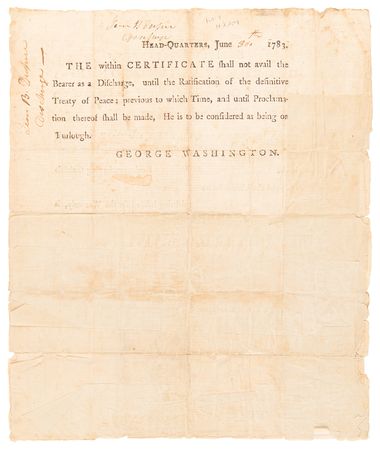 HEAD-QUARTERS, June 1783.
THE within CERTIFICATE shall not avail the
Bearer as a Discharge, until the Ratification of the definitive
Treaty of Peace; previous to which Time, and until Proclama-
tion thereof shall be made, He is to be considered as being on
Furlough.
GEORGE WASHINGTON.